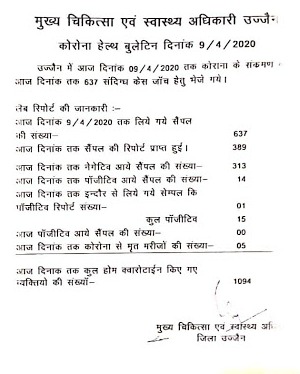 मुख्य चिकित्सा एवं स्वास्थ्य अधिकारी उज्जैन
कोरोना हेल्थ बुलेटिन दिनांक 9/4/2020
उज्जैन में आज दिनांक 09/4/2020 तक कोराना के संकमण
आज दिनांक तक 637 संदिग्ध केस जॉच हेतु भेजे गये।
लेब रिपोर्ट की जानकारी :-
आज दिनांक 9/4/2020 तक लिये गये सैंपल
की संख्या- 637
आज दिनांक तक सैंपल की रिपोर्ट प्राप्त हुई। 389
आज दिनांक तक नेगेटिव आये सैंपल की संख्या- 313
आज दिनांक तक पॉजीटिव आये सैंपल की संख्या- 14
आज दिनांक तक इन्दौर से लिये गये सेम्पल कि
पॉजीटिव रिपोर्ट संख्या- 01
कुल पॉजीटिव 15
आज पॉजीटिव आये सैंपल की संख्या- 00
आज दिनांक तक कोरोना से मृत मरीजों की संख्या- 05
आज दिनाक तक कुल होम क्वारोटाईन किए गए
व्यक्तियो की संख्यॉ- 1094
मुख्य चिकित्सा एवं स्वास्थ्य अधि
जिला उज्जैन